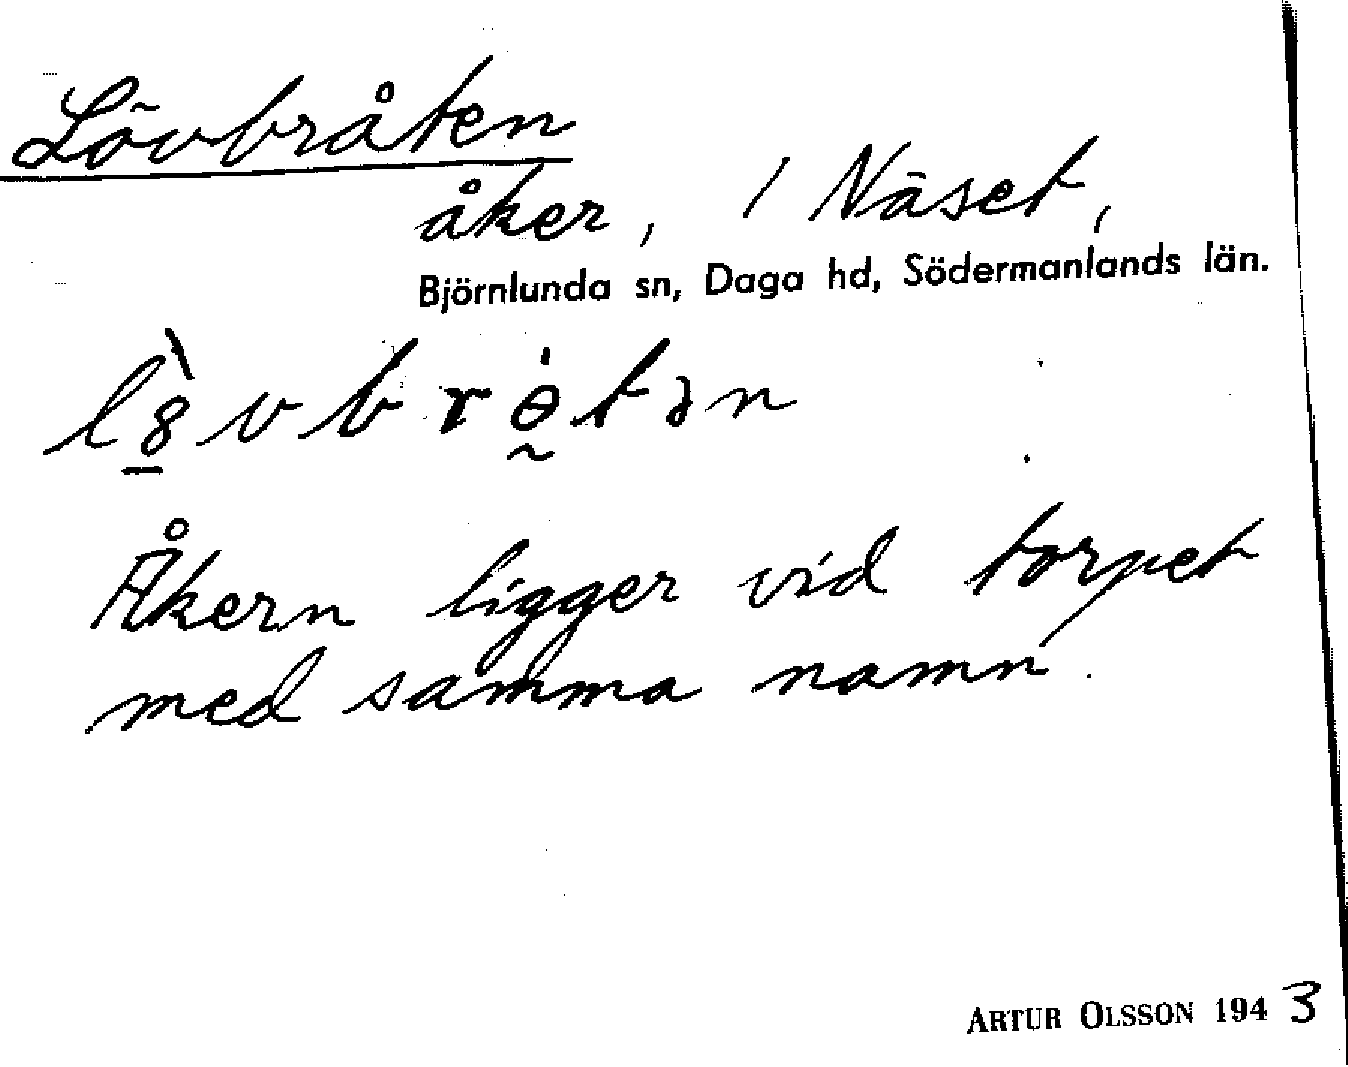 Lövbråten
åker, / Näset,
Björnlunda sn, Daga hd, Södermanlands län.
l8̠̀vbrɵ̰̇tən
Åkern ligger vid torpet
med samma namn.
ARTUR OLSSON 1943